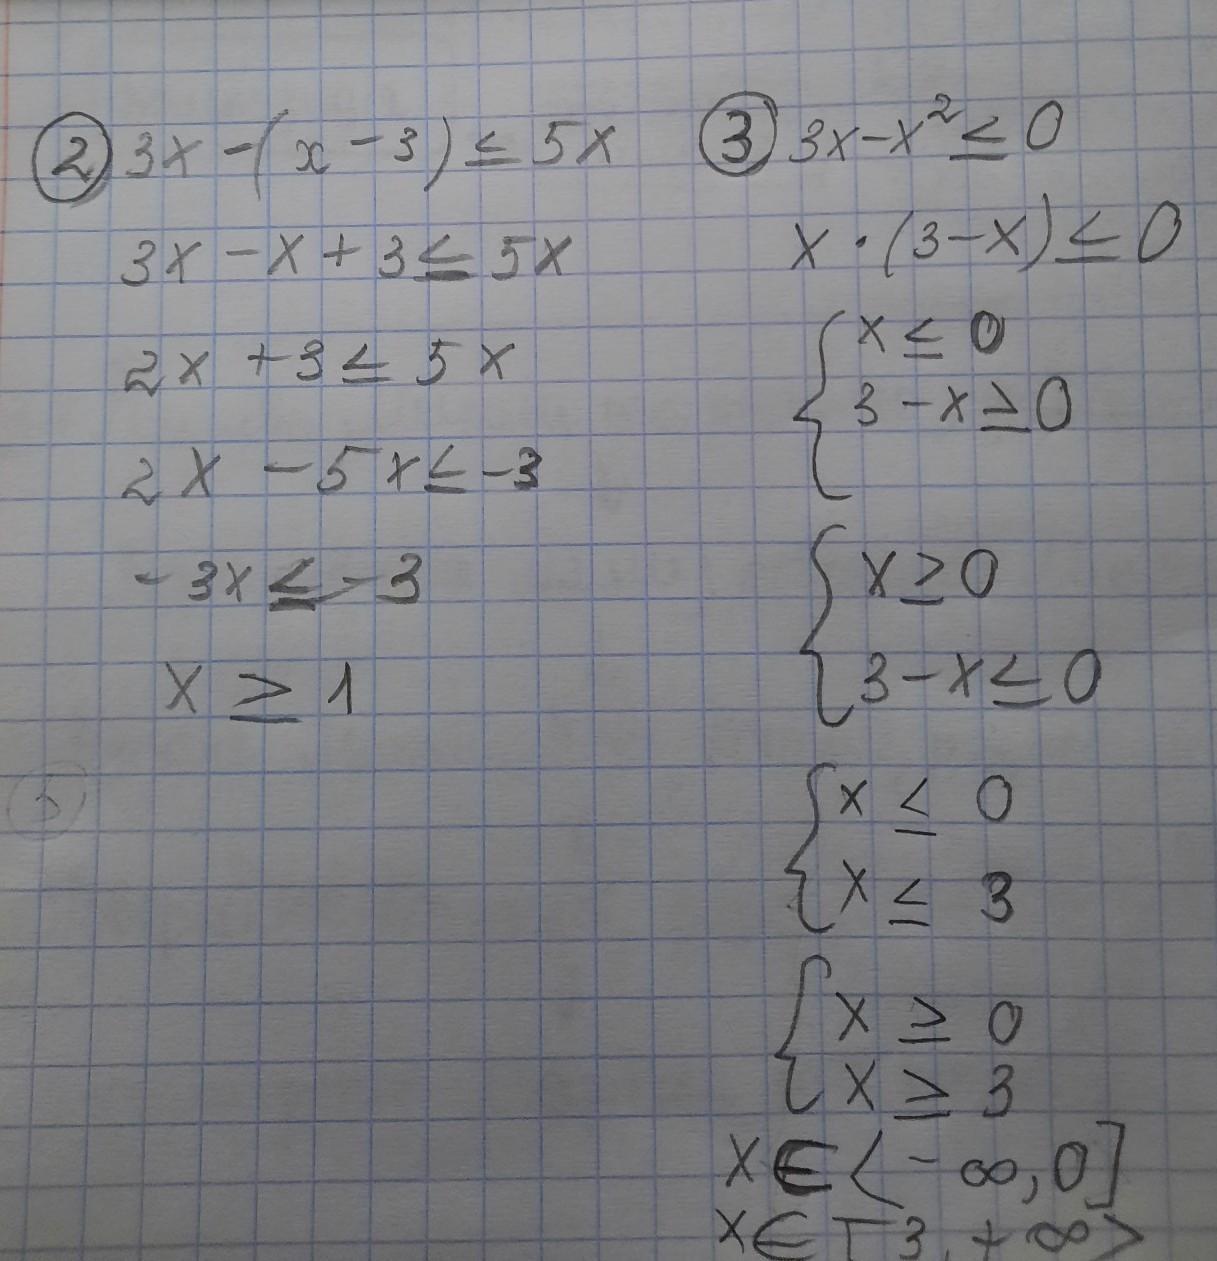 ② 3x - (x - 3) ≤ 5x
3x - x + 3 ≤ 5x
2x + 3 ≤ 5x
2x - 5x ≤ -3
- 3x ≤ - 3
x ≥ 1
③ 3x - x² ≤ 0
x · (3 - x) ≤ 0
{ x ≤ 0
3 - x ≥ 0
{ x ≥ 0
3 - x ≤ 0
{ x ≤ 0
x ≤ 3
{ x ≥ 0
x ≥ 3
x ∈ < - ∞, 0]
x ∈ [3, + ∞ >